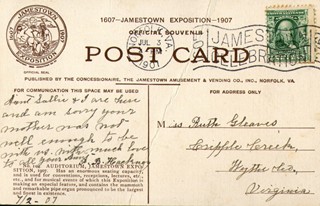 1607-JAMESTOWN EXPOSITION-1907
OFFICIAL SOUVENIR
JAMESTOWN
1607
1907
EXPOSITION
OFFICIAL SEAL
POST CARD
NORFOLK, VA.
JUL 3
1907
JAMESTOWN
PUBLISHED BY THE CONCESSIONAIRE, THE JAMESTOWN AMUSEMENT & VENDING CO., INC., NORFOLK, VA.
FOR COMMUNICATION THIS SPACE MAY BE USED
FOR ADDRESS ONLY
Aunt Sallie & I are here
and am sorry your
mother was not
well enough to be
with us. With much love
to all you
Miss Ruth Gleaves
Cripple Creek,
Wythe Co,
Virginia
AUDITORIUM, JAMESTOWN EXPOSITION, 1907. Has an enormous seating capacity,
and is used for conventions, receptions, lectures, etc.,
and for musical events of which this Exposition is
making an especial feature, and contains the mammoth
and remarkable pipe organ pronounced to be the largest
and finest in existence.
7/2-07